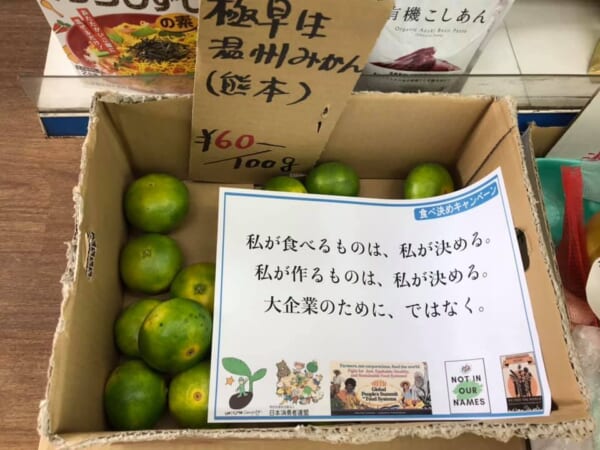 の素
有機こしあん
Organic Azuki Bean Paste
極早生
温州みかん
(熊本)
¥60-/100g
食べ決めキャンペーン
私が食べるものは、私が決める。
私が作るものは、私が決める。
大企業のために、ではなく。
Farmers, not corporations, feed the world.
Global People's Summit on Food Systems
日本消費者連盟
NOT IN OUR NAMES